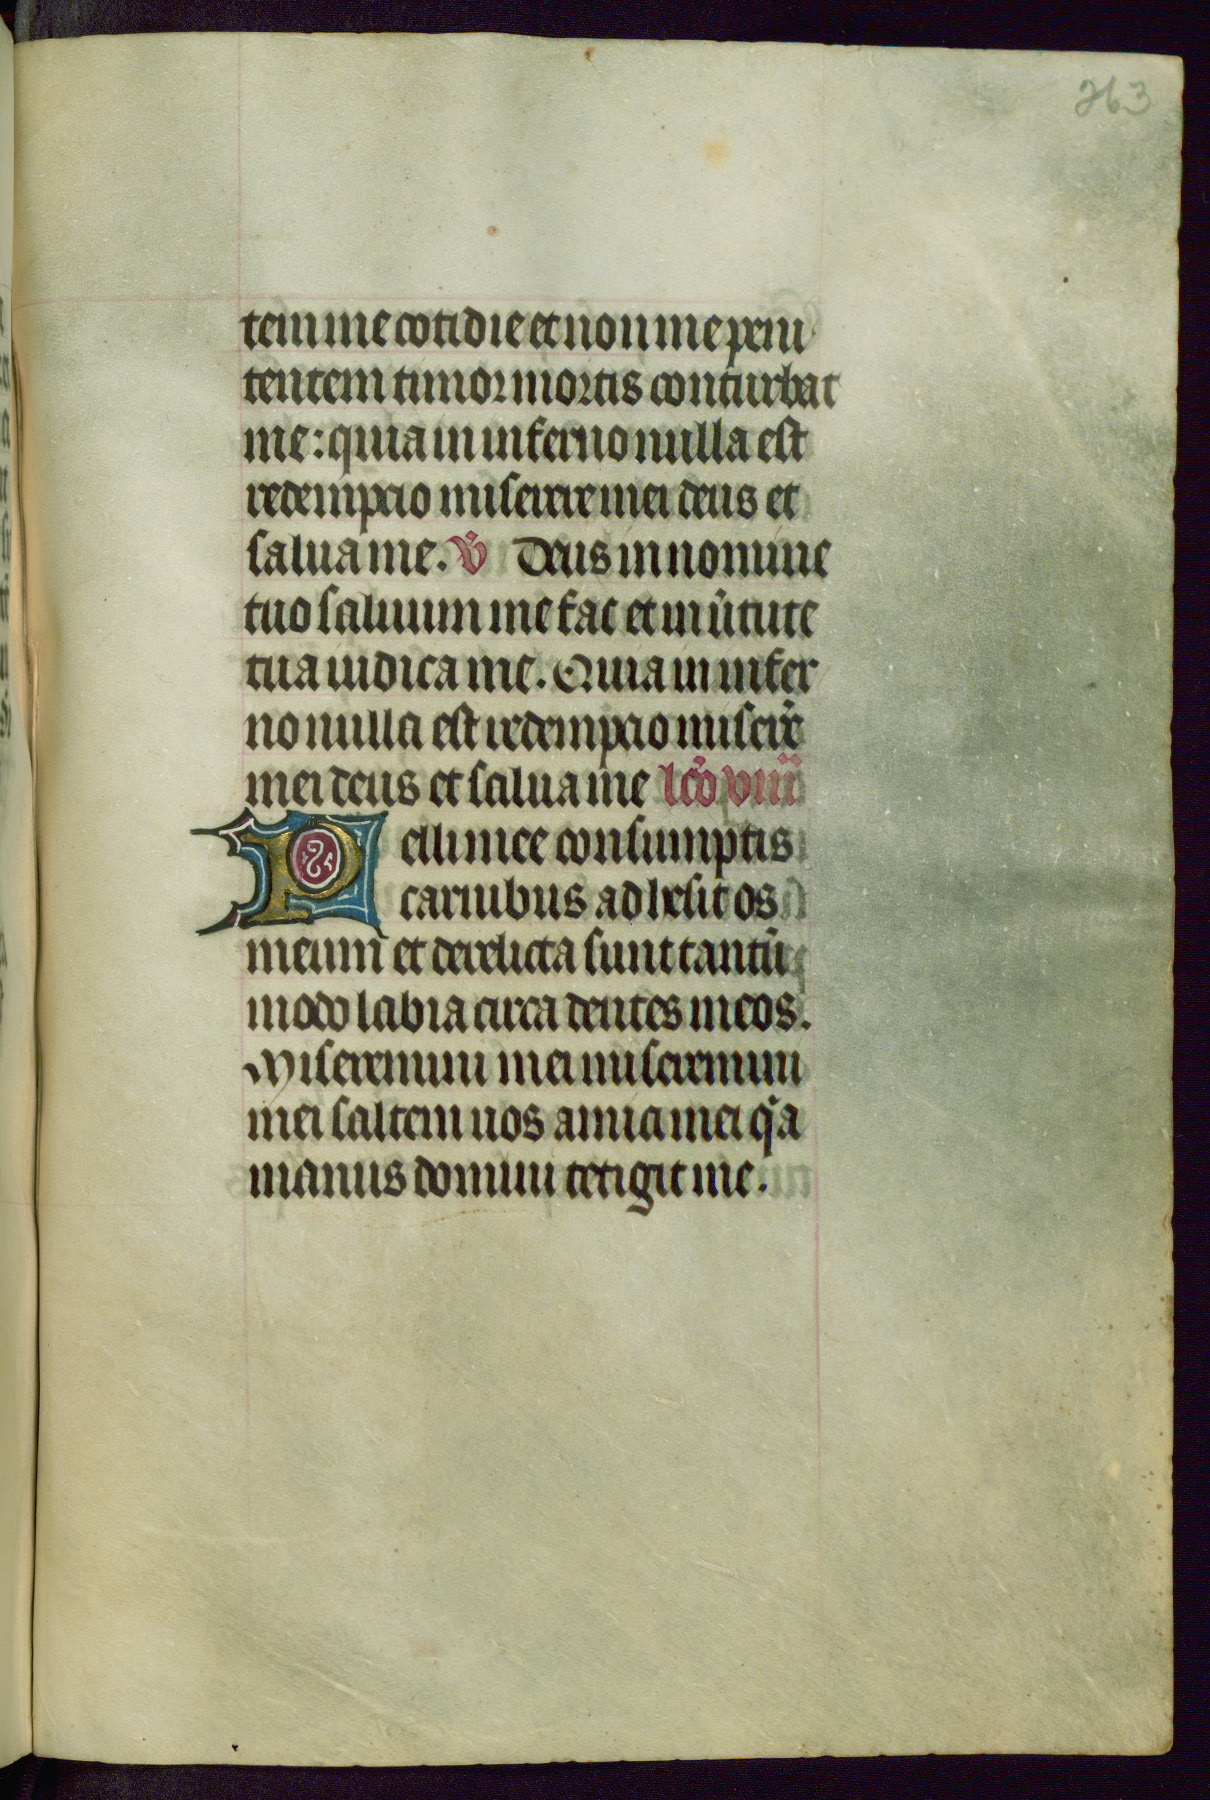 263
tem me cotidie et non me peni
tentem timor mortis conturbat
me: quia in inferno nulla est
redempcio miserere mei deus et
salua me. v̄ Deus in nomine
tuo saluum me fac et in ūtute
tua iudica me. Quia in infer
no nulla est redempcio miserē
mei deus et salua me lcō viii
Pelli mee consumptis
carnibus adhesit os
meum et derelicta sunt tantū
modo labia circa dentes meos.
Miseremini mei miseremini
mei saltem uos amici mei q̄a
manus domini tetigit me.